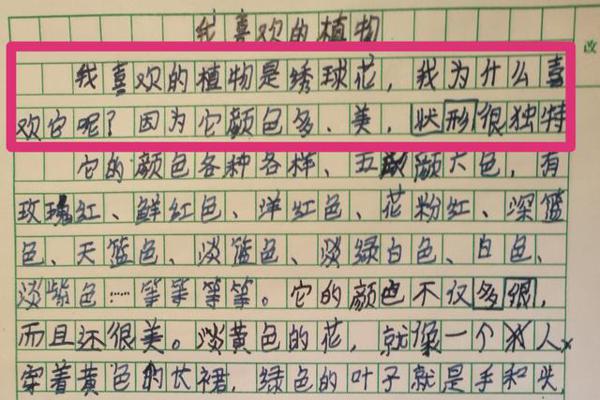 我喜欢的植物
我喜欢的植物是绣球花，我为什么喜
欢它呢？因为它颜色多、美，状形很独特
它的颜色各种各样、五颜六色，有
玫瑰红、鲜红色、洋红色、花粉红、深篮
色、天篮色、淡篮色、淡绿白色、白色、
淡紫色……等等等等。它的颜色不仅多很，
而且还很美。淡黄色的花，就像一个人
穿着黄色的长裙，绿色的叶子就是手和头，
改